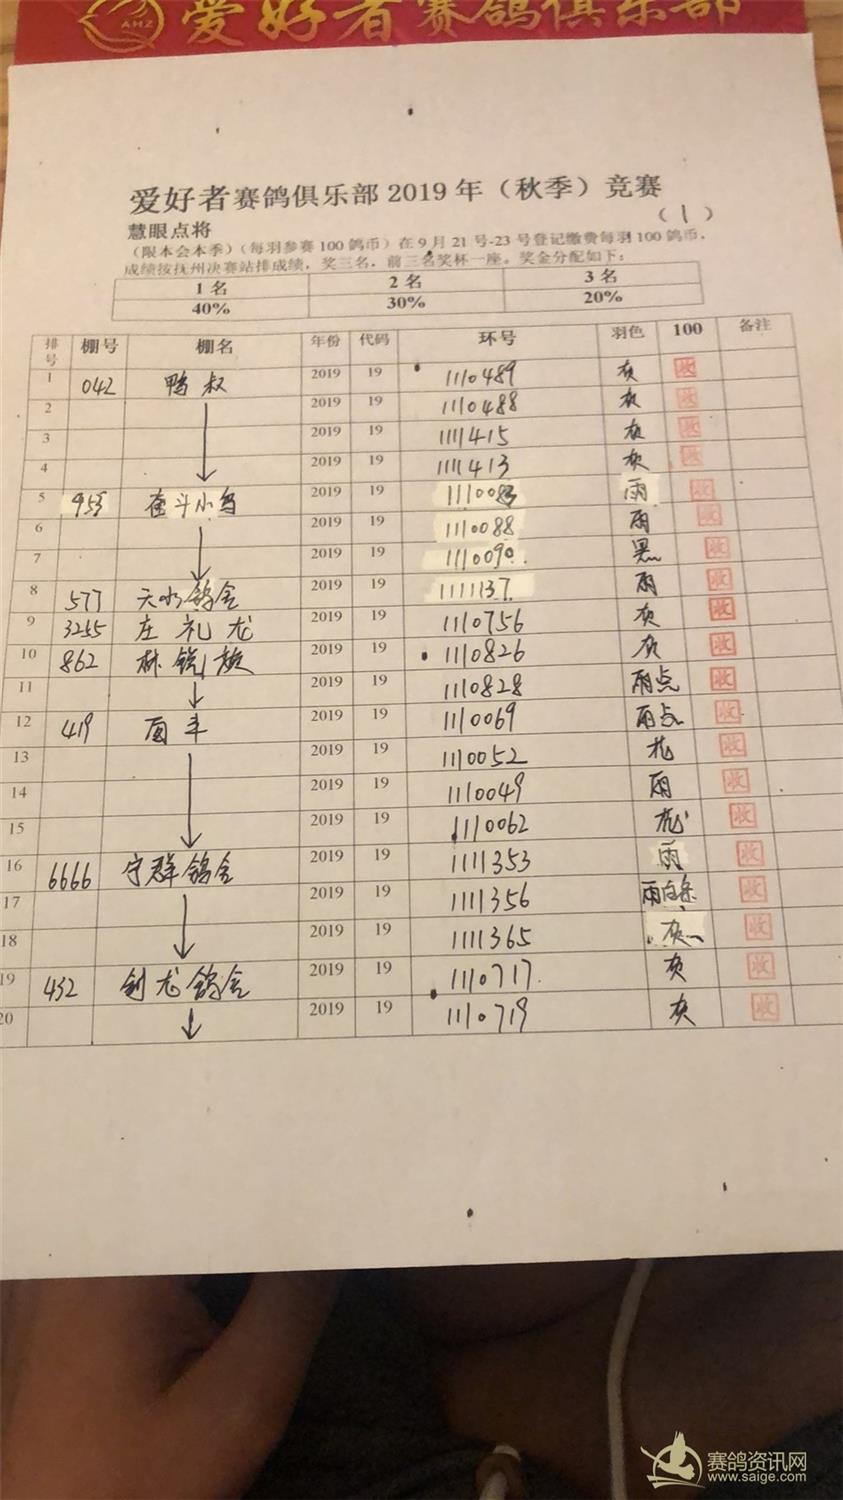 AHZ 爱好者赛鸽俱乐部
爱好者赛鸽俱乐部2019年（秋季）竞赛
慧眼点将 （1）
（限本会本季）（每羽参赛100鸽币）在9月21号-23号登记缴费每羽100鸽币，
成绩按抚州决赛站排成绩，奖三名，前三名奖杯一座。奖金分配如下：
1名 2名 3名
40% 30% 20%
排号 棚号 棚名 年份 代码 环号 羽色 100 备注
1 042 鸭叔 2019 19 1110489 灰 收
2 2019 19 1110488 灰 收
3 2019 19 1111415 灰 收
4 2019 19 1111413 灰 收
5 953 奋斗小鸟 2019 19 1110083 雨 收
6 2019 19 1110088 雨 收
7 2019 19 1110090 黑 收
8 577 天水鸽舍 2019 19 1111137 雨 收
9 3255 庄礼龙 2019 19 1110756 灰 收
10 862 林锐 2019 19 1110826 灰 收
11 2019 19 1110828 雨点 收
12 419 2019 19 1110069 雨点 收
13 2019 19 1110052 花 收
14 2019 19 1110049 雨 收
15 2019 19 1110062 花 收
16 6666 守群鸽舍 2019 19 1111353 雨 收
17 2019 19 1111356 雨白条 收
18 2019 19 1111365 灰 收
19 432 剑龙鸽舍 2019 19 1110717 灰 收
20 2019 19 1110719 灰 收
赛鸽资讯网
www.saige.com